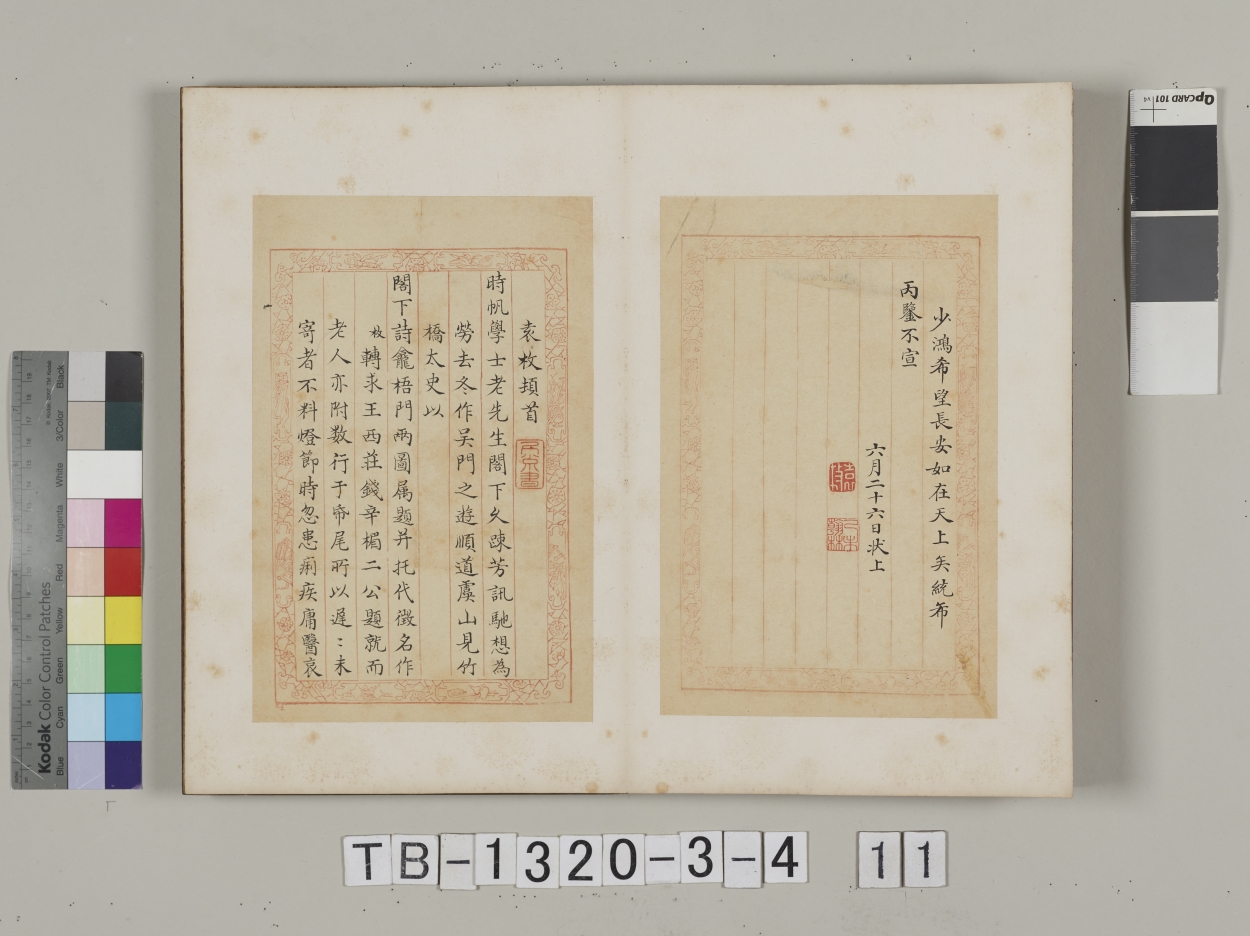 少鴻希望長安如在天上矣統布
丙鑒不宣
六月二十六日狀上
袁枚頓首
時帆學士老先生閣下久踈芳訊馳想為
勞去冬作吴門之遊順道虞山見竹
橋太史以
閣下詩龕梧門兩圖属題并托代徵名作
枚轉求王西莊錢辛楣二公題就而
老人亦附数行于帋尾所以遅〻未
寄者不料燈節時忽患痢疾庸醫哀
TB-1320-3-4 11
QPCARD 101 v4
Kodak Color Control Patches
Blue
Cyan
Green
Yellow
Red
Magenta
White
3/Color
Black